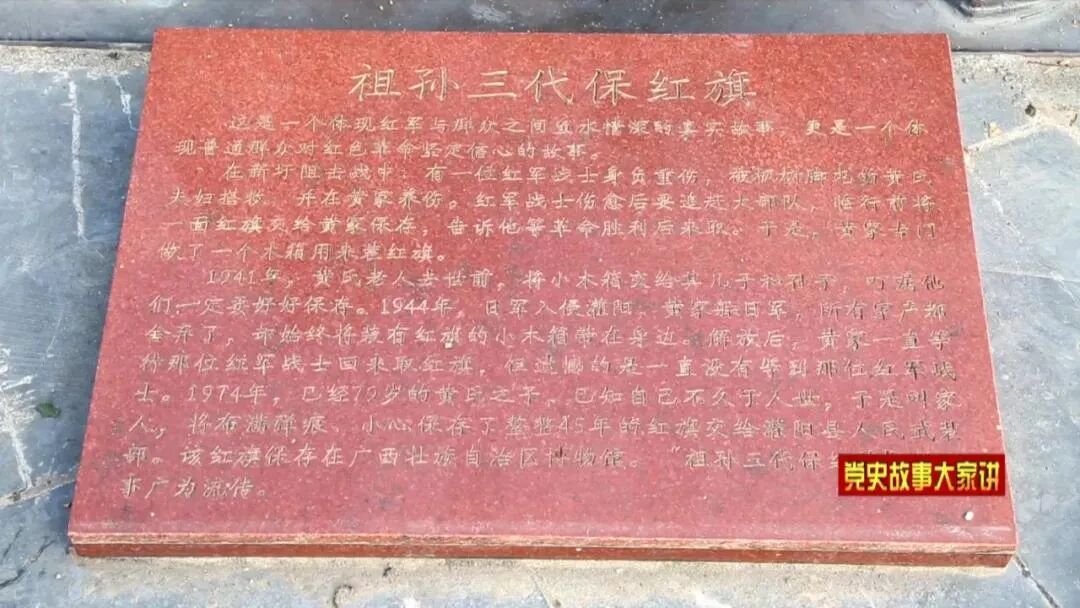 祖孙三代保红旗
这是一个体现红军与群众之间鱼水情深的真实故事，更是一个体
现普通群众对红色革命坚定信心的故事。
在新圩阻击战中，有一位红军战士身负重伤，被枫树脚屯的黄氏
夫妇搭救，并在黄家养伤。红军战士伤愈后要追赶大部队，临行前将
一面红旗交给黄家保存，告诉他等革命胜利后来取。于是，黄家专门
做了一个木箱用来装红旗。
1941年，黄氏老人去世前，将小木箱交给其儿子和孙子，叮嘱他
们一定要好好保存。1944年，日军入侵灌阳，黄家躲日军，所有家产都
舍弃了，却始终将装有红旗的小木箱带在身边。解放后，黄家一直等
待那位红军战士回来取红旗，但遗憾的是一直没有等到那位红军战
士。1974年，已经79岁的黄氏之子，已知自己不久于人世，于是叫家
人，将布满弹痕、小心保存了整整45年的红旗交给灌阳县人民武装
部。该红旗保存在广西壮族自治区博物馆。“祖孙三代保
事广为流传。
党史故事大家讲